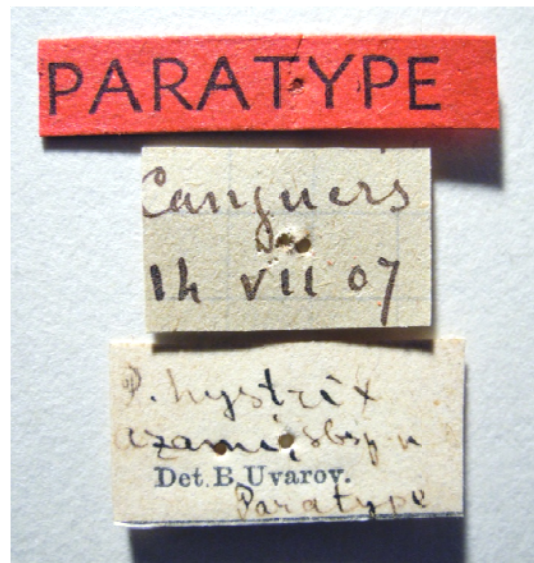 PARATYPE
Canjuers
14 VII 07
P. hystrix
azami, sbsp. n
Det. B. Uvarov.
Paratype